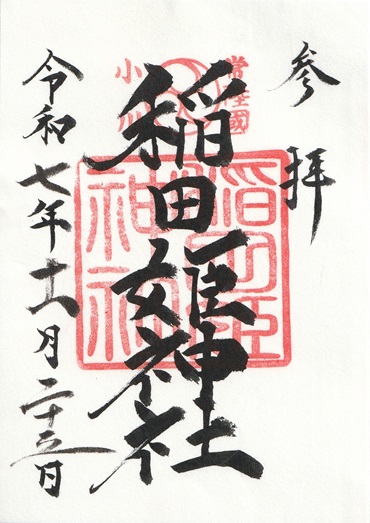 参拝
常陸國
小川
稲田姫神社
稲田姫神社
令和七年十一月二十三日